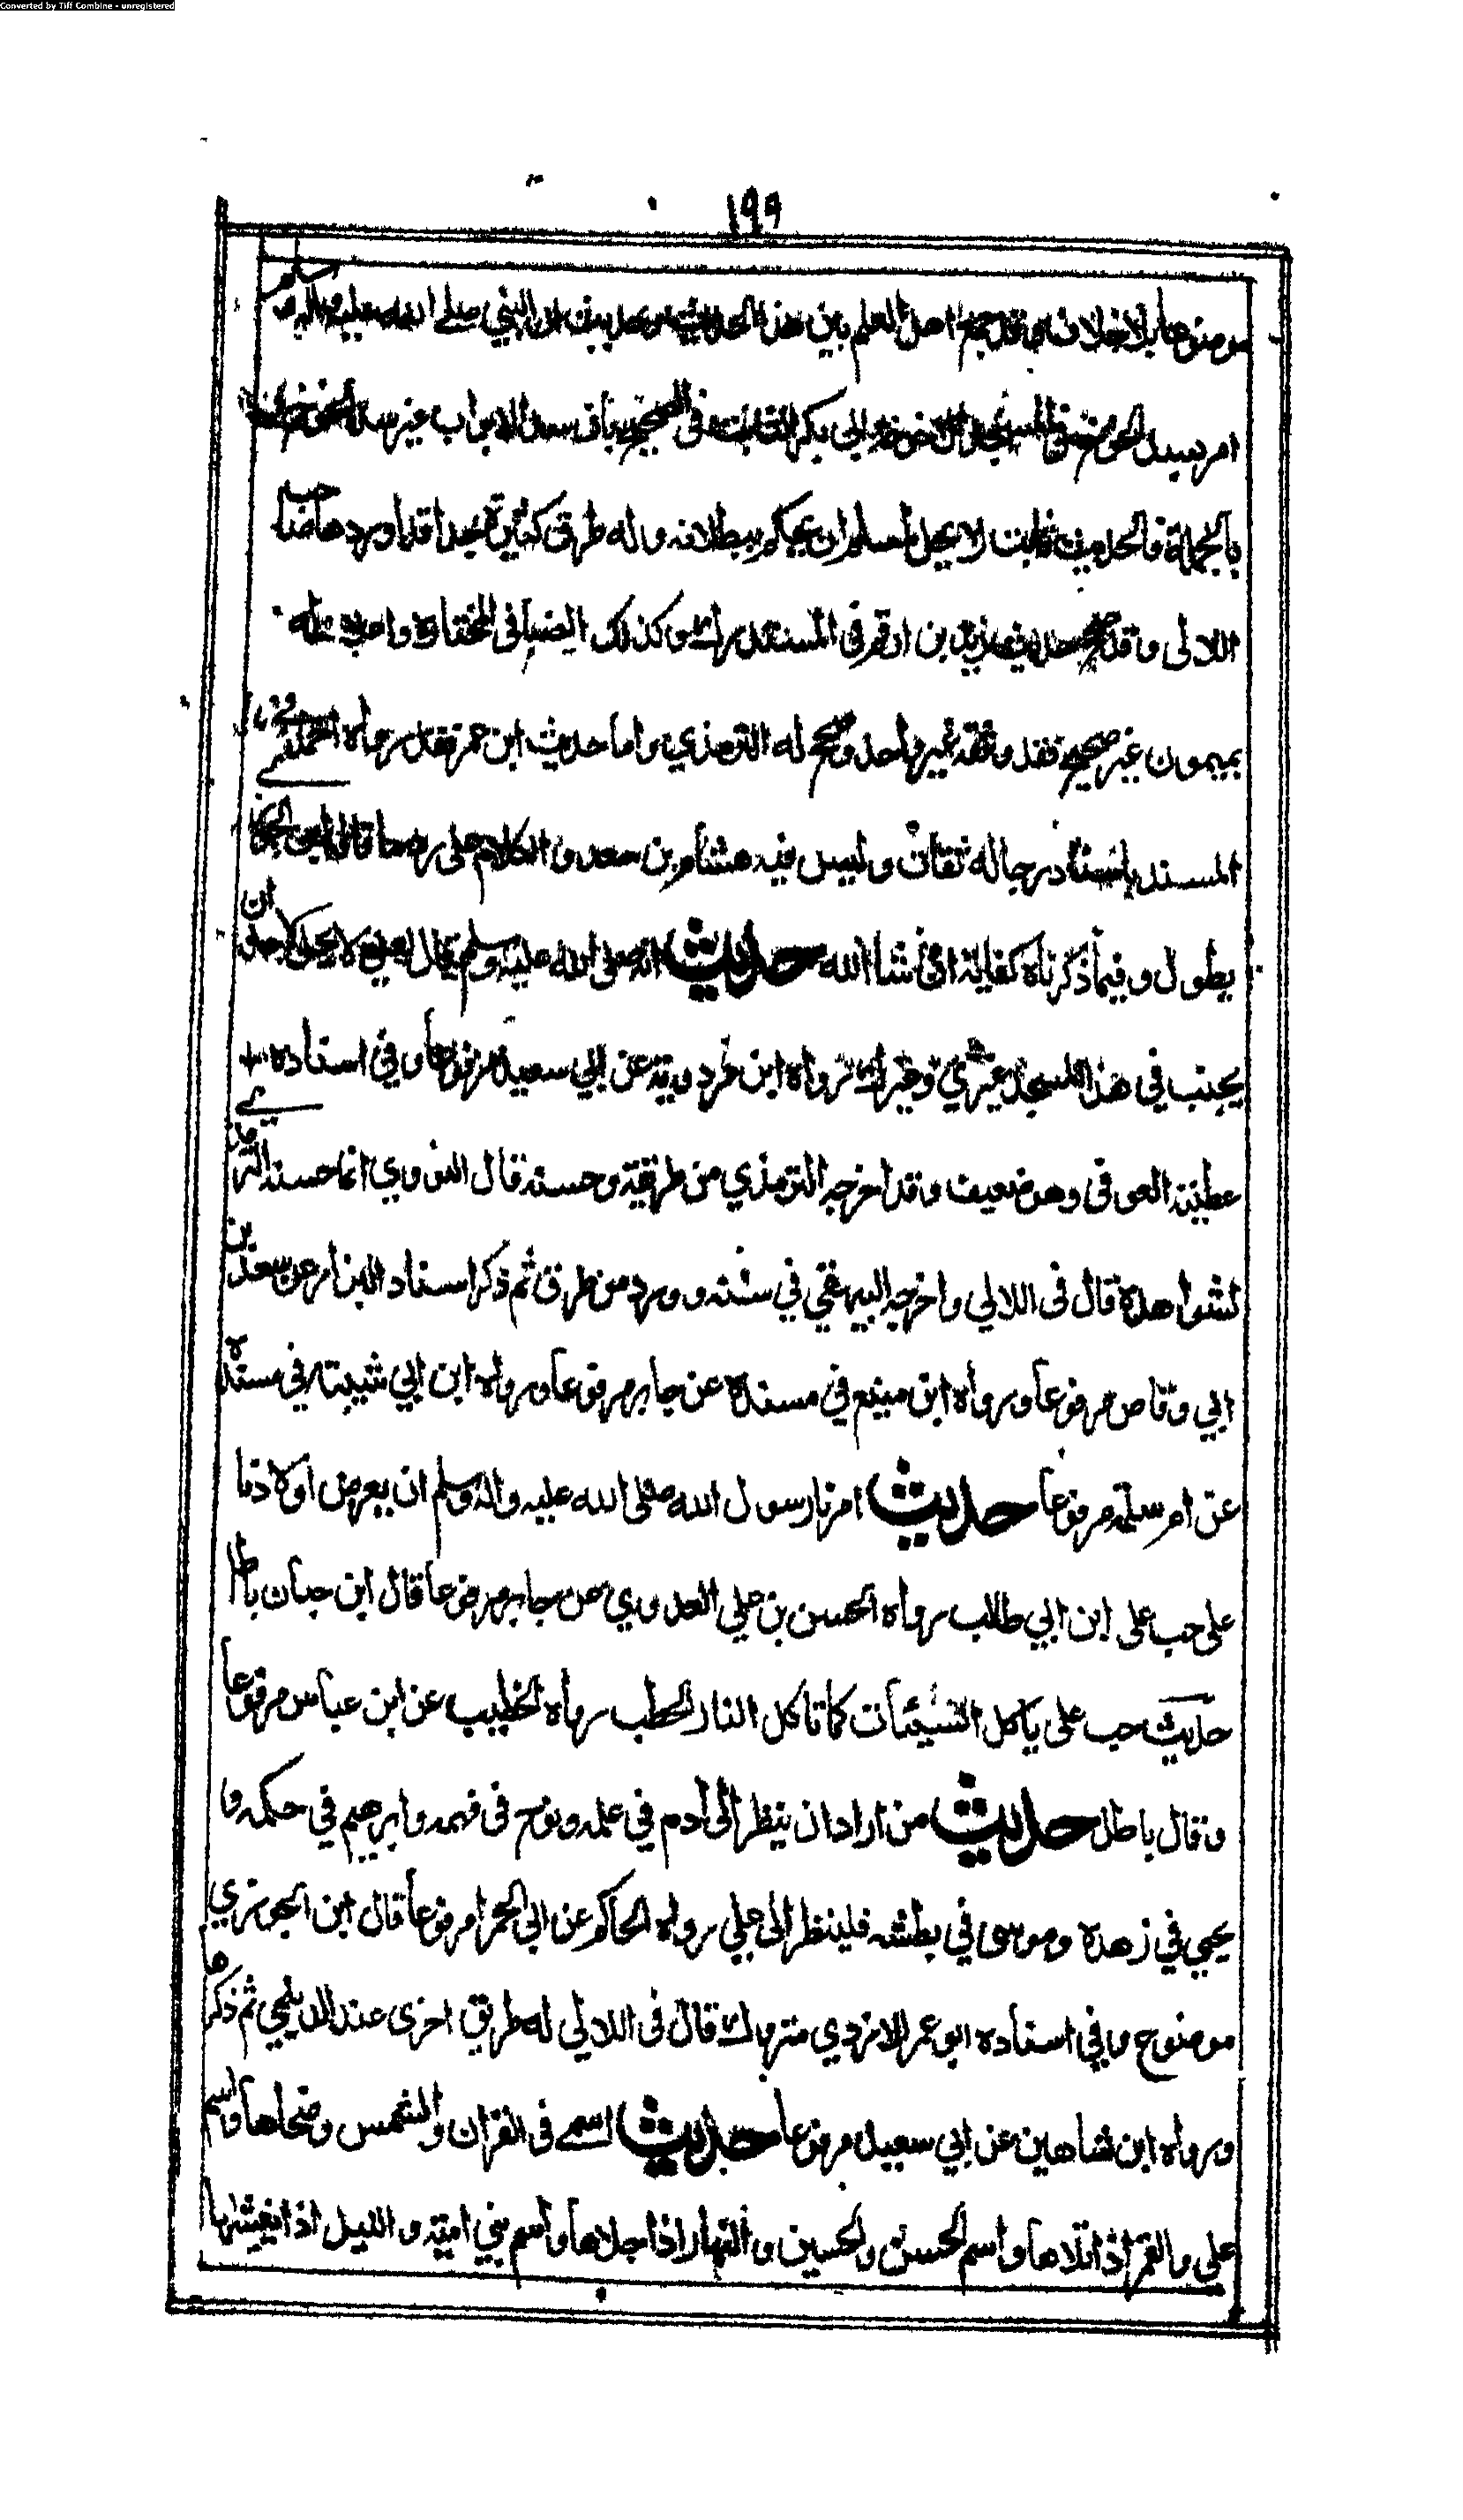 Converted by Tiff Combine - unregistered
١٩٩
موضوعا بلا خلاف وقد جمع اهل العلم بين هذا الحديث وحديث ان النبي صلى الله عليه واله وسلم
امر بسد الخوخ في المسجد الا خوخة ابي بكر الثابت في الصحيح بان سد الابواب غير سد الخوخ
بالجملة فالحديث ثابت لا يحل لمسلم ان يحكم ببطلانه وله طرق كثيرة جدا قد اوردها صاحب
اللالى وقد صحح حديث زيد بن ارقم في المستدرك وكذلك الضيا فى المختارة واعلاله
بميمون غير صحيح فقد وثقه غير واحد وصحح له الترمذي واما حديث ابن عمر فقد رواه احمد في
المسند باسناد رجاله ثقات وليس فيه هشام بن سعد والكلام على رد ما قاله ابن الجوزي
يطول وفيما ذكرناه كفاية ان شا الله حديث انه صلى الله عليه وسلم قال لعلي لا يحل لاحد ان
يجنب في هذا المسجد غيري وغيرك رواه ابن مردوية عن ابي سعيد مرفوعا وفي اسناده
عطية العوفي وهو ضعيف وقد اخرجه الترمذي من طريقه وحسنه قال النووي انما حسنه الترمذي
لشواهده قال فى اللالي واخرجه البيهقي في سننه وورد من طرق ثم ذكر اسناد البزار عن سعد بن
ابي وقاص مرفوعا ورواه ابن منيع في مسنده عن جابر مرفوعا ورواه ابن ابي شيبة في مسنده
عن ام سلمة مرفوعا حديث امرنا رسول الله صلى الله عليه واله وسلم ان يعرض اولادنا
على حب على ابن ابي طالب رواه الحسن بن علي العدوي عن جابر مرفوعا قال ابن حبان باطل
حديث حب على ياكل السيئات كما تاكل النار الحطب رواه الخطيب عن ابن عباس مرفوعا
وقال باطل حديث من اراد ان ينظر الى ادم في علمه ونوح فى فهمه وابرهيم في حكمه و
يحيي في زهده وموسى في بطشه فلينظر الى علي رواه الحاكم عن ابي الحمرا مرفوعا قال ابن الجوزي
موضوع وفي اسناده ابو عمر الازدي متروك قال فى اللالي له طريق اخرى عند الديلمي ثم ذكرها
ورواه ابن شاهين عن ابي سعيد مرفوعا حديث اسمي فى القران والشمس وضحاها واسم
علي والقمر اذا تلاها واسم الحسن والحسين والنهار اذا جلاها واسم بني امية والليل اذا يغشاها